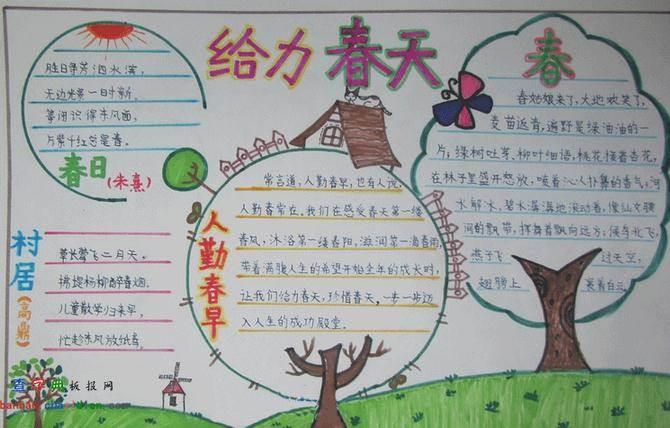 给力春天
胜日寻芳泗水滨,
无边光景一时新。
等闲识得东风面,
万紫千红总是春。
春日(朱熹)
村居
(高鼎)
草长莺飞二月天。
拂堤杨柳醉春烟。
儿童散学归来早,
忙趁东风放纸鸢。
人勤春早
常言道,人勤春早,也有人说,
人勤春常在。我们在感受春天第一缕
春风,沐浴第一缕春阳,滋润第一滴春雨,
带着满腹人生的希望开始全年的成长时,
让我们给力春天,珍惜春天,一步一步迈
入人生的成功殿堂。
春
春姑娘来了,大地欢笑了,
麦苗返青,遍野是绿油油的一
片;绿树吐芽、柳叶细语,桃花接着杏花,
在林子里盛开怒放,喷着沁人扑鼻的香气,河
水解冰,碧水潺潺地滚动着,像仙女腰
间的飘带,挥舞着飘向远方;候鸟北飞,
燕子飞 过天空,
翅膀上 裹着白云
查字典板报网